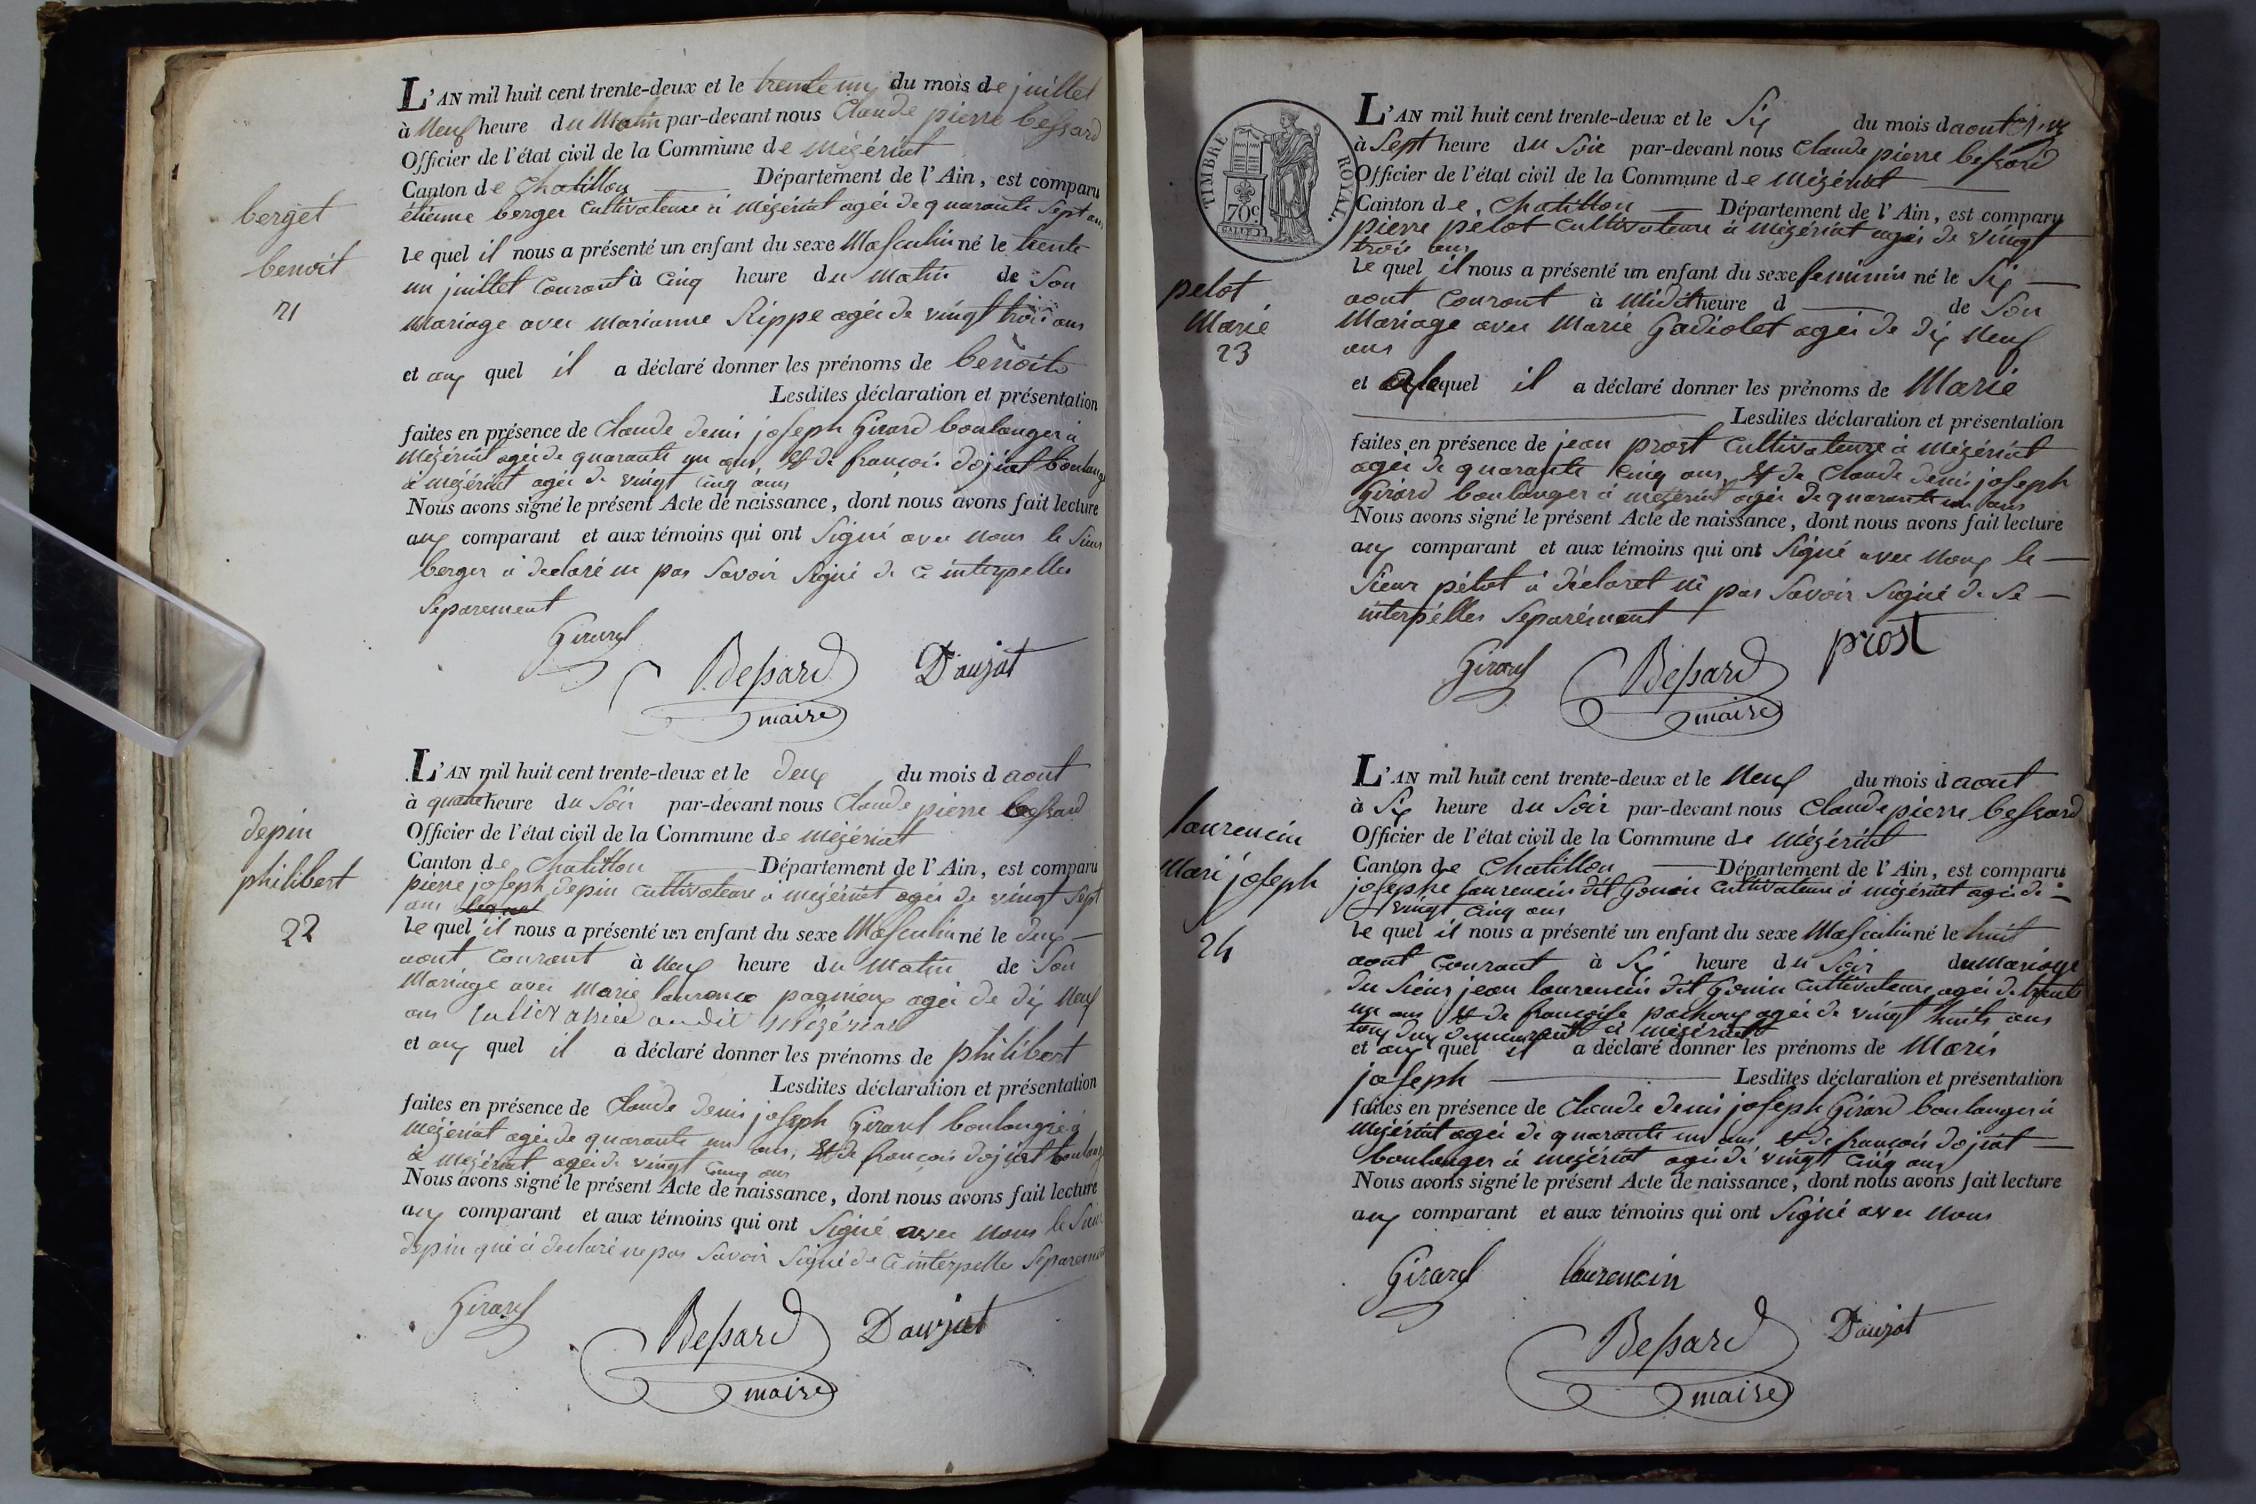 L'AN mil huit cent trente-deux et le trente un du mois de juillet
à Neuf heure du Matin par-devant nous Claude pierre bessard
Officier de l'état civil de la Commune de mézériat
Canton de Chatillon Département de l'Ain, est comparu
étienne berger Cultivateur à mézériat agée de quarante Sept ans
berget
benoit
21
le quel il nous a présenté un enfant du sexe Masculin né le trente
un juillet Courant à Cinq heure du Matin de Son
Mariage avec Marianne Rippe agée de vingt trois ans
et aux quel il a déclaré donner les prénoms de benoit
Lesdites déclaration et présentation
faites en présence de Claude denis joseph Girard boulanger à
Mézériat agée de quarante un ans, et de françois dojat boulang
à mézériat agée de vingt Cinq ans
Nous avons signé le présent Acte de naissance, dont nous avons fait lecture
aux comparant et aux témoins qui ont Signé avec Nous le Sieur
berger à declaré ne pas Savoir Signé de ce interpelles
Separement
Girard
Bessard Daujat
maire
L'AN mil huit cent trente-deux et le deux du mois d aout
à quatre heure du Soir par-devant nous Claude pierre bessard
Officier de l'état civil de la Commune de mézériat
Canton de Chatillon Département de l'Ain, est comparu
pierre joseph depin Cultivateur à mézériat agée de vingt Sept
ans
depin
philibert
22
le quel il nous a présenté un enfant du sexe Masculin né le deux
aout Courant à Neuf heure du Matin de Son
Mariage avec Marie laurence pagnieux agée de dix Neuf
ans audit Mézériat
et aux quel il a déclaré donner les prénoms de philibert
Lesdites déclaration et présentation
faites en présence de Claude denis joseph Girard boulangé à
mézériat agée de quarante un ans, et de françois dojat boulang
à mézériat agée de vingt Cinq ans
Nous avons signé le présent Acte de naissance, dont nous avons fait lecture
aux comparant et aux témoins qui ont Signé avec Nous le Sieur
depin qui à declaré ne pas Savoir Signé de ce interpelles Separement
Girard
Bessard Daujat
maire
TIMBRE ROYAL.
70c
L'AN mil huit cent trente-deux et le Six du mois d aout
à Sept heure du Soir par-devant nous Claude pierre bessard
Officier de l'état civil de la Commune de mézériat
Canton de Chatillon Département de l'Ain, est comparu
pierre pélot Cultivateur à mézériat agée de vingt
trois ans
pelot
Marie
23
le quel il nous a présenté un enfant du sexe feminin né le Six
aout Courant à Midi heure d de Son
Mariage avec Marie Gadiolet agée de dix Neuf
ans
et quel il a déclaré donner les prénoms de Marie
Lesdites déclaration et présentation
faites en présence de jean prost Cultivateur à mézériat
agée de quarante Cinq ans, et de Claude denis joseph
Girard boulanger à mézériat agée de quarante un ans
Nous avons signé le présent Acte de naissance, dont nous avons fait lecture
aux comparant et aux témoins qui ont Signé avec Nous le
Sieur pélot à déclaret ne pas Savoir Signé de Se
interpélles Separément
prost
Girard Bessard
maire
L'AN mil huit cent trente-deux et le Neuf du mois d aout
à Six heure du Soir par-devant nous Claude pierre bessard
Officier de l'état civil de la Commune de mézériat
Canton de Chatillon Département de l'Ain, est comparu
josephe laurencin dit Gonin Cultivateur à mézériat agée de
vingt Cinq ans
laurencin
Mari joseph
24
le quel il nous a présenté un enfant du sexe Masculin né le huit
aout Courant à Six heure du Soir du Mariage
du Sieur jean laurencin dit Gonin Cultivateur agée de trente
un ans et de françoise agée de vingt huits ans
tous deux demeurant à mézériat
et aux quel il a déclaré donner les prénoms de Marie
joseph Lesdites déclaration et présentation
faites en présence de Claude denis joseph Girard boulanger à
Mézériat agée de quarante un ans, et de françois dojat
boulanger à mézériat agée de vingt Cinq ans
Nous avons signé le présent Acte de naissance, dont nous avons fait lecture
aux comparant et aux témoins qui ont Signé avec Nous
Girard laurencin
Bessard Daujat
maire